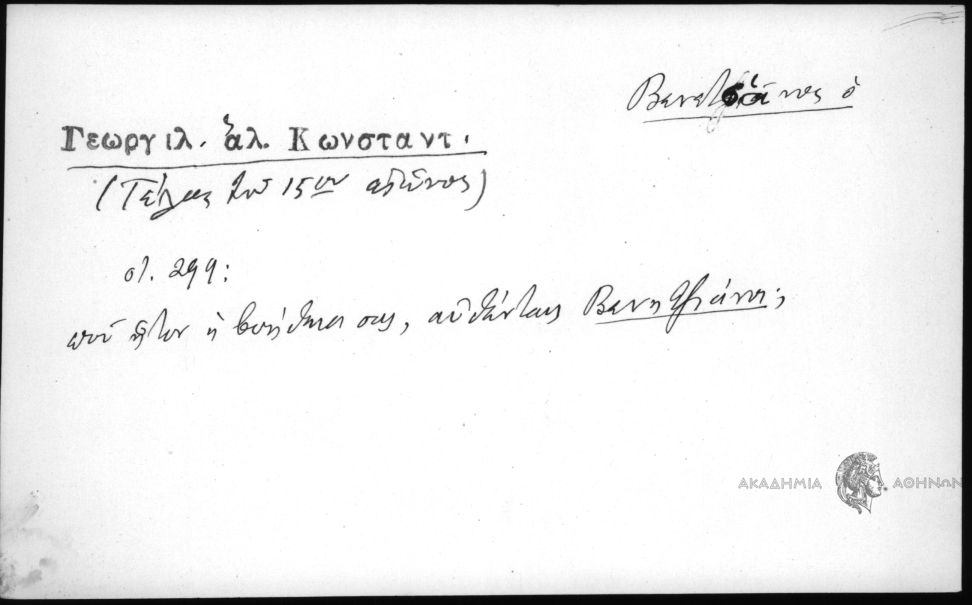 Βενετζιάνος ὁ
Γεωργιλ. ἅλ. Κωνσταντ.
(Τέλος τοῦ 15ου αἰῶνος)
στ. 299:
ποῦ ἦτον ἡ βοήθεια σας, αὐθένταις Βενητζιάνοι;
ΑΚΑΔΗΜΙΑ ΑΘΗΝΩΝ